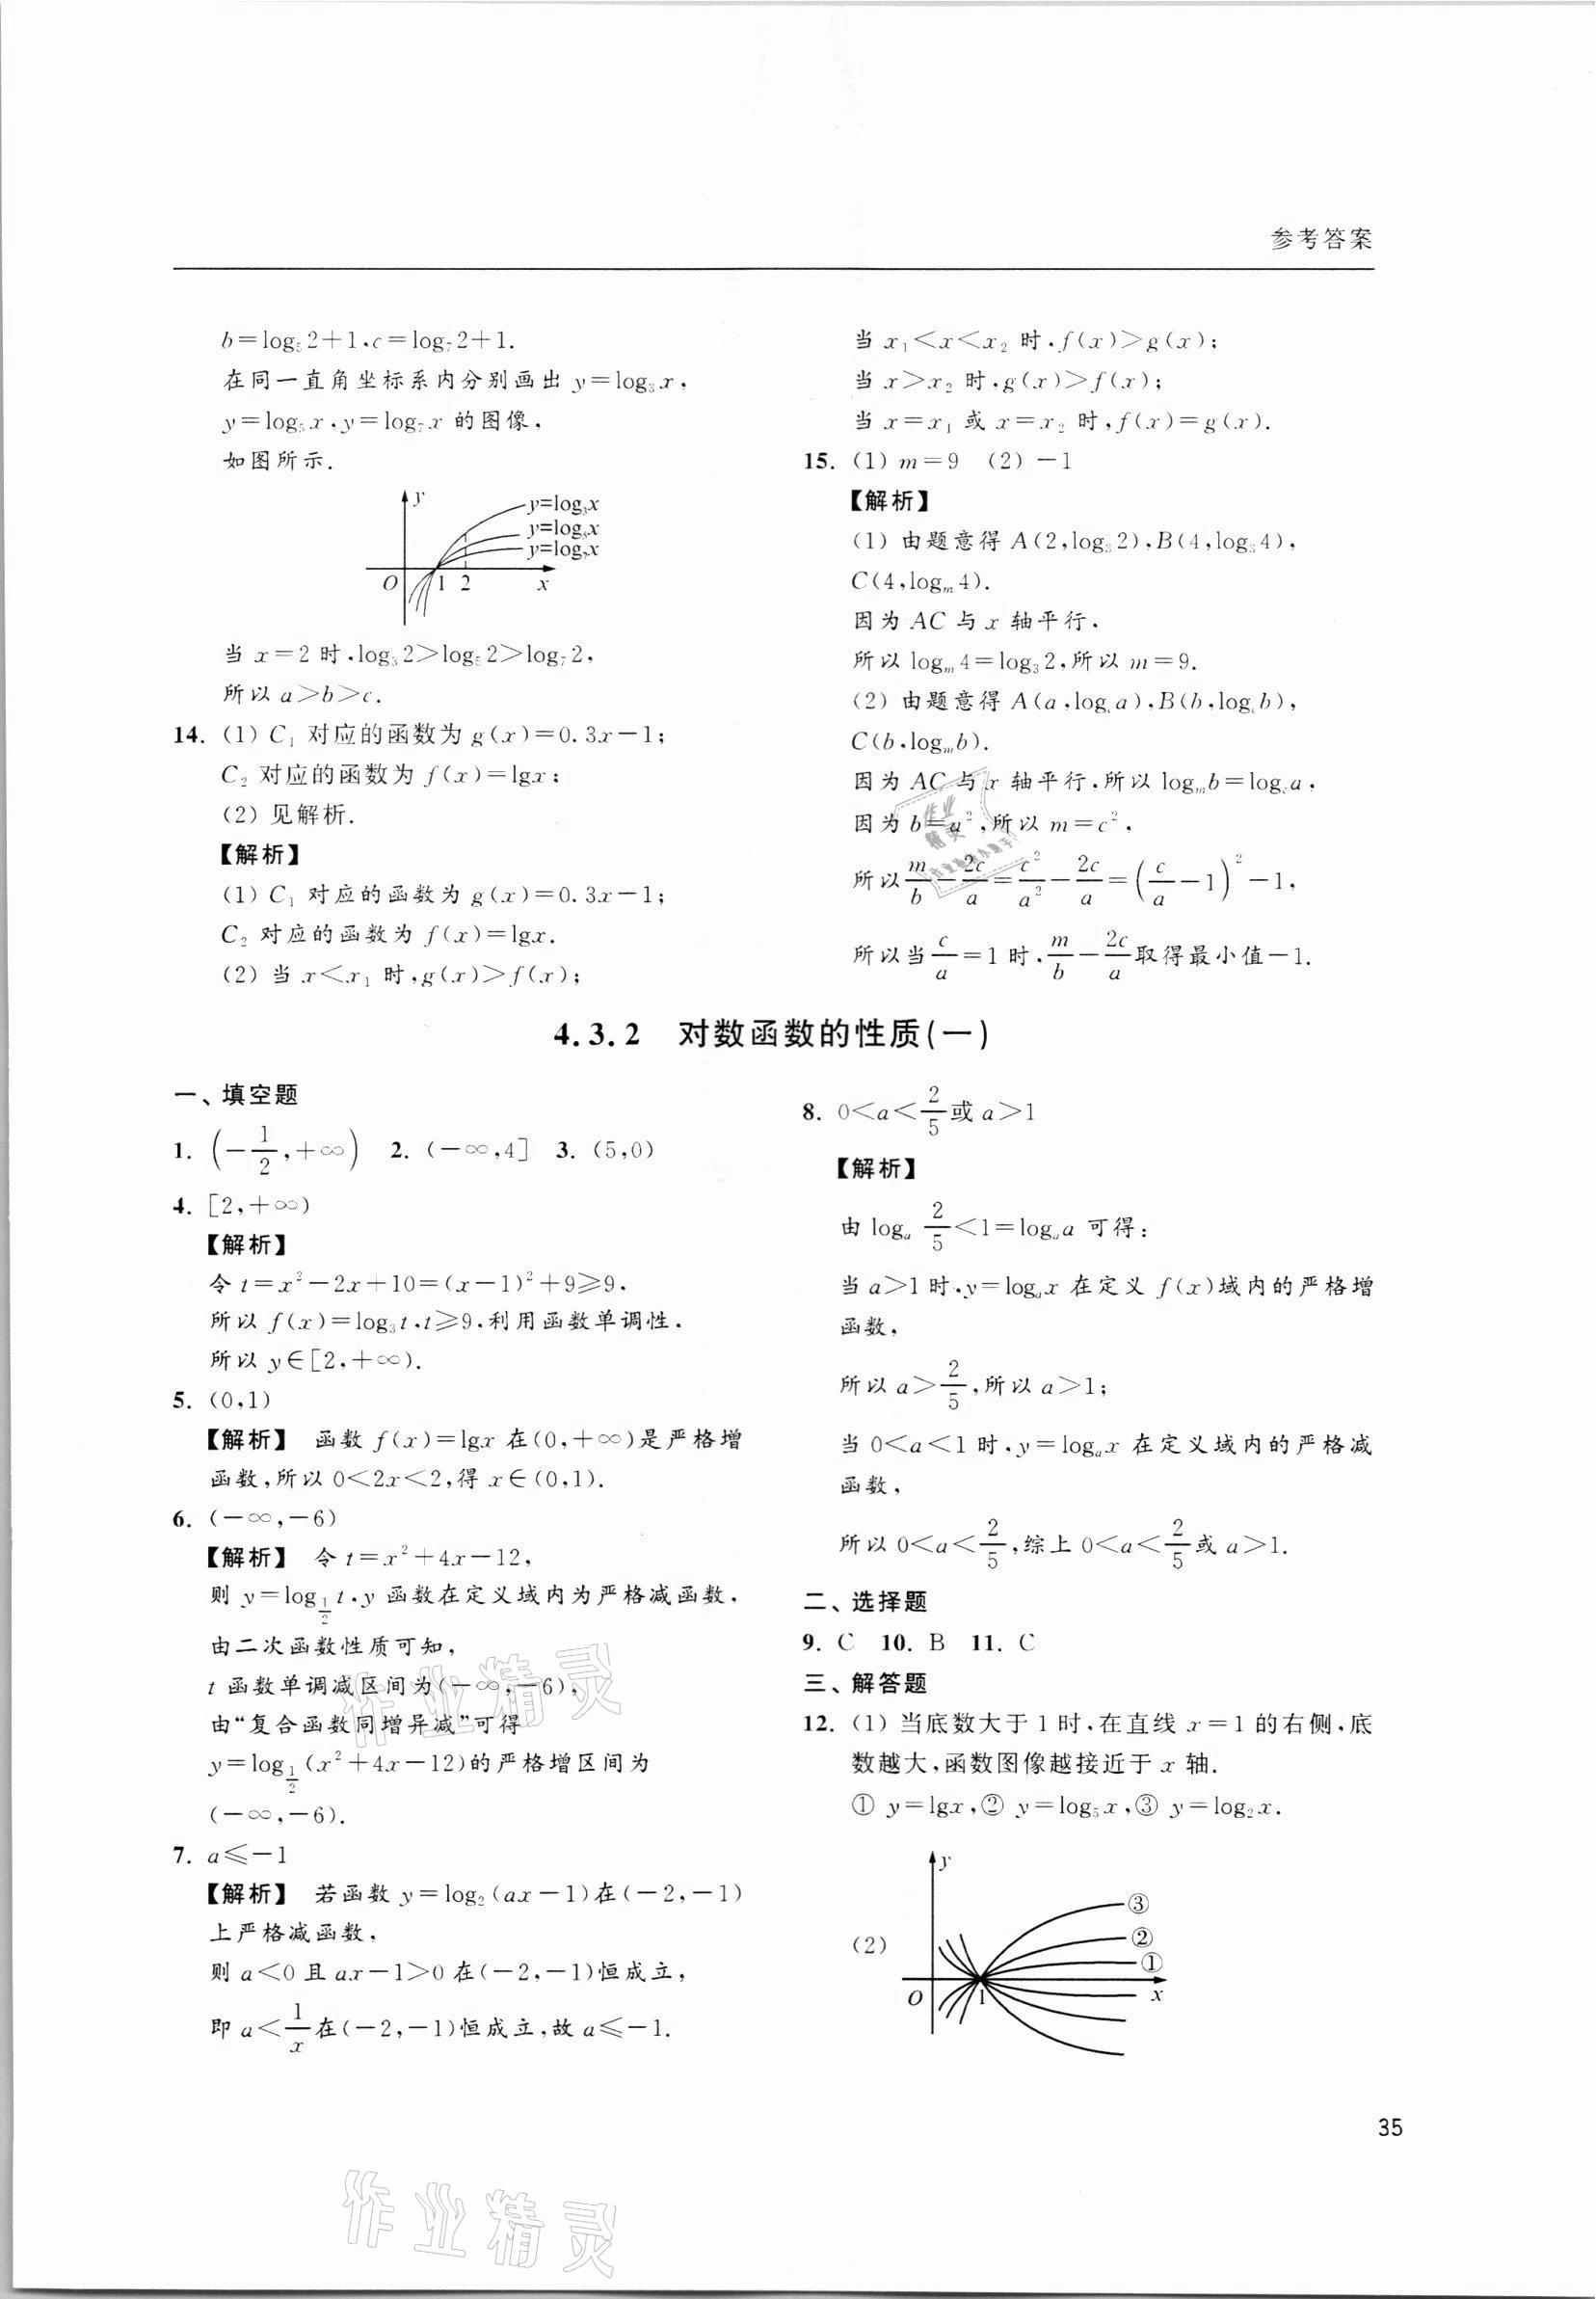 参考答案
b=log₅2+1,c=log₇2+1.
在同一直角坐标系内分别画出 y=log₃x,
y=log₅x,y=log₇x 的图像,
如图所示.
y
y=log₃x
y=log₅x
y=log₇x
O 1 2 x
当 x=2 时,log₃2>log₅2>log₇2,
所以 a>b>c.
14. (1) C₁ 对应的函数为 g(x)=0.3x-1;
C₂ 对应的函数为 f(x)=lgx;
(2) 见解析.
【解析】
(1) C₁ 对应的函数为 g(x)=0.3x-1;
C₂ 对应的函数为 f(x)=lgx.
(2) 当 x<x₁ 时,g(x)>f(x);
当 x₁<x<x₂ 时,f(x)>g(x);
当 x>x₂ 时,g(x)>f(x);
当 x=x₁ 或 x=x₂ 时,f(x)=g(x).
15. (1) m=9 (2) -1
【解析】
(1) 由题意得 A(2,log₃2),B(4,log₃4),
C(4,logₘ4).
因为 AC 与 x 轴平行,
所以 logₘ4=log₃2,所以 m=9.
(2) 由题意得 A(a,log_c a),B(b,log_c b),
C(b,logₘb).
因为 AC 与 x 轴平行,所以 logₘb=log_c a,
因为 b=a²,所以 m=c²,
所以 m/b-2c/a=c²/a²-2c/a=(c/a-1)²-1,
所以当 c/a=1 时,m/b-2c/a 取得最小值-1.
4.3.2 对数函数的性质(一)
一、填空题
1. (-1/2,+∞) 2. (-∞,4] 3. (5,0)
4. [2,+∞)
【解析】
令 t=x²-2x+10=(x-1)²+9≥9,
所以 f(x)=log₃t,t≥9,利用函数单调性,
所以 y∈[2,+∞).
5. (0,1)
【解析】 函数 f(x)=lgx 在(0,+∞)是严格增
函数,所以 0<2x<2,得 x∈(0,1).
6. (-∞,-6)
【解析】 令 t=x²+4x-12,
则 y=log_{1/2} t,y 函数在定义域内为严格减函数,
由二次函数性质可知,
t 函数单调减区间为(-∞,-6),
由“复合函数同增异减”可得
y=log_{1/2}(x²+4x-12)的严格增区间为
(-∞,-6).
7. a≤-1
【解析】 若函数 y=log₂(ax-1)在(-2,-1)
上严格减函数,
则 a<0 且 ax-1>0 在(-2,-1)恒成立,
即 a<1/x 在(-2,-1)恒成立,故 a≤-1.
8. 0<a<2/5 或 a>1
【解析】
由 logₐ 2/5<1=logₐa 可得:
当 a>1 时,y=logₐx 在定义 f(x)域内的严格增
函数,
所以 a>2/5,所以 a>1;
当 0<a<1 时,y=logₐx 在定义域内的严格减
函数,
所以 0<a<2/5,综上 0<a<2/5 或 a>1.
二、选择题
9. C 10. B 11. C
三、解答题
12. (1) 当底数大于 1 时,在直线 x=1 的右侧,底
数越大,函数图像越接近于 x 轴.
① y=lgx,② y=log₅x,③ y=log₂x.
(2)
y
③
②
①
O 1 x
35
作业精灵
作业精灵
作业
精灵